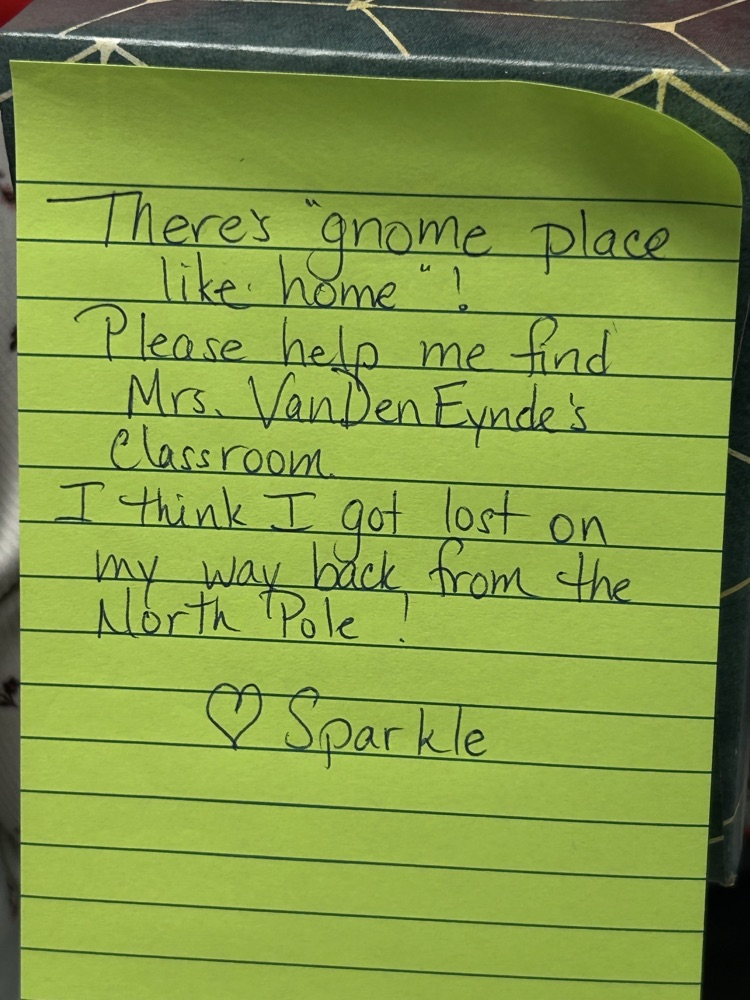 There's "gnome place
like home"!
Please help me find
Mrs. VanDenEynde's
Classroom.
I think I got lost on
my way back from the
North Pole!
♡ Sparkle